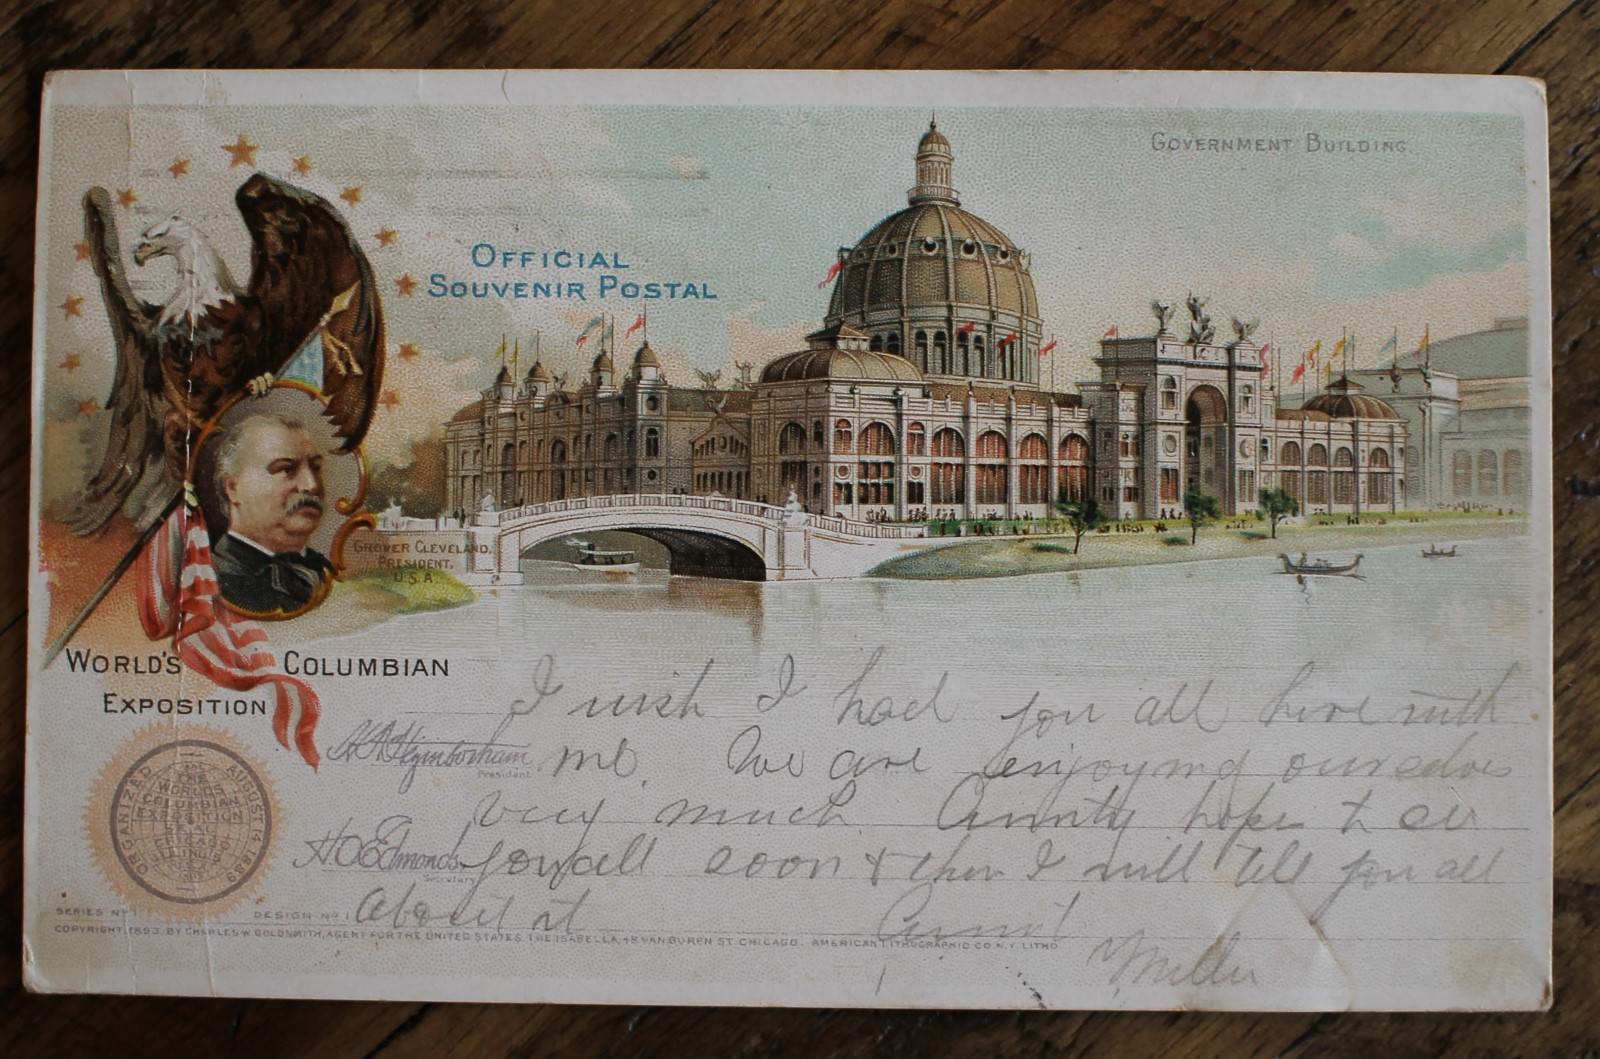 GOVERNMENT BUILDING.
OFFICIAL
SOUVENIR POSTAL
GROVER CLEVELAND,
PRESIDENT,
U.S.A.
WORLD'S COLUMBIAN
EXPOSITION
I wish I had you all here with
me. We are enjoying ourselves
very much hope to see
you all soon & then I will tell you all
about it
Miller
President
H O Edmonds
Secretary
ORGANIZED AUGUST 14 1889
THE
WORLD'S
COLUMBIAN
EXPOSITION
SEAL
CHICAGO
ILLINOIS
SERIES No 1 DESIGN No 1
COPYRIGHT, 1893, BY CHARLES W. GOLDSMITH, AGENT FOR THE UNITED STATES. THE ISABELLA, 48 VAN BUREN ST. CHICAGO. AMERICAN LITHOGRAPHIC CO. N.Y. LITHO